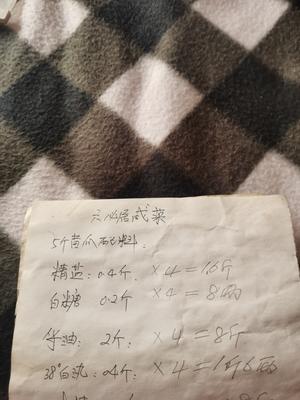 六必居咸菜
5斤黄瓜配料:
精盐: 0.4斤. ×4=1.6斤
白糖 0.2斤 ×4=8两
油: 2斤: ×4=8斤
38°白酒: 0.4斤: ×4=1斤6两